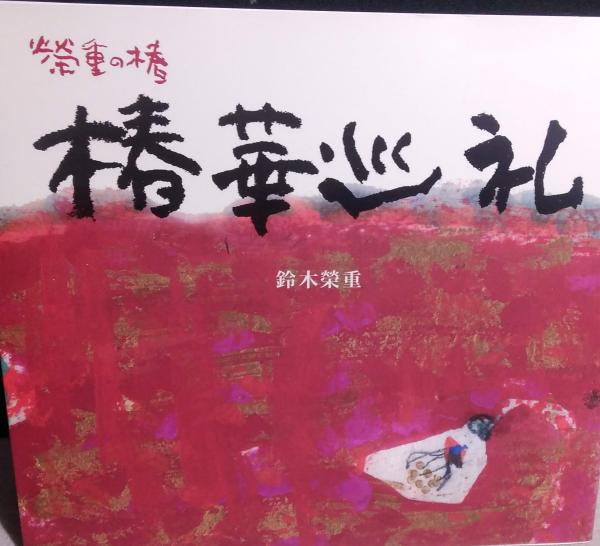 榮重の椿
椿華巡礼
鈴木榮重